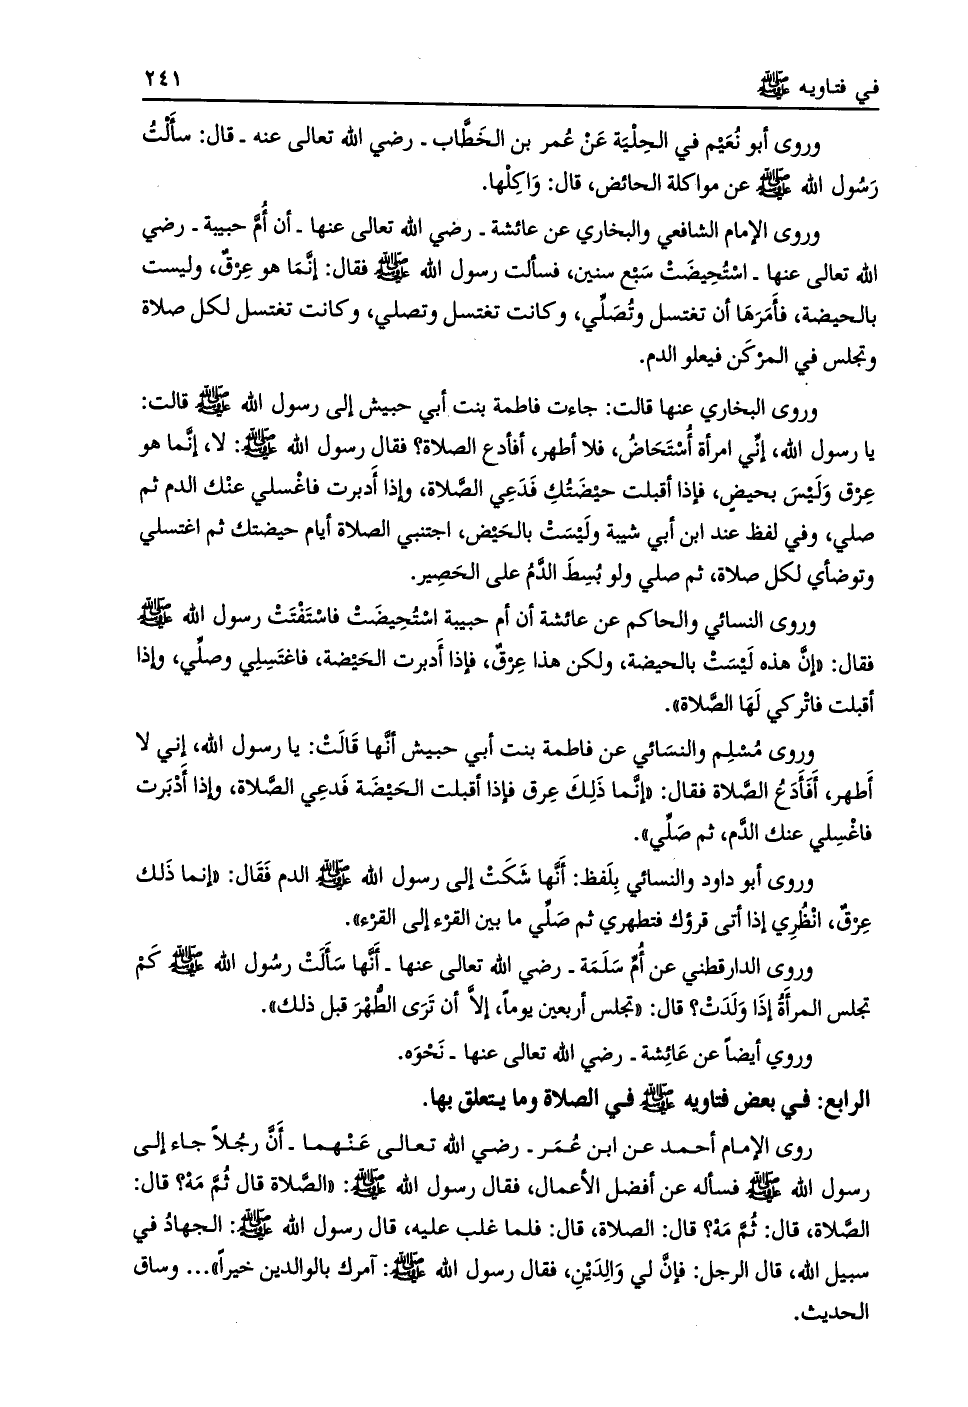 في فتاويه ﷺ ٢٤١
وروى أبو نُعَيْم في الحِلْيَة عَنْ عُمر بن الخَطَّاب ـ رضي الله تعالى عنه ـ قال: سأَلْتُ
رَسُول الله ﷺ عن مواكلة الحائض، قال: وَاكِلْها.
وروى الإمام الشافعي والبخاري عن عائشة ـ رضي الله تعالى عنها ـ أن أُمَّ حبيبة ـ رضي
الله تعالى عنها ـ اسْتُحِيضَتْ سَبْع سنين، فسألت رسول الله ﷺ فقال: إنَّمَا هو عِرْقٌ، وليست
بالحيضة، فأَمَرَهَا أن تغتسل وتُصَلِّي، وكانت تغتسل وتصلي، وكانت تغتسل لكل صلاة
وتجلس في المرْكَن فيعلو الدم.
وروى البخاري عنها قالت: جاءت فاطمة بنت أبي حبيش إلى رسول الله ﷺ قالت:
يا رسول الله، إنِّي امرأة أُسْتَحَاضُ، فلا أطهر، أفأدع الصلاة؟ فقال رسول الله ﷺ: لا، إنَّما هو
عِرْق وَلَيْسَ بحيضٍ، فإذا أقبلت حيْضَتُكِ فَدَعِي الصَّلاة، وإذا أَدبرت فاغْسلي عنْك الدم ثم
صلي، وفي لفظ عند ابن أبي شيبة ولَيْسَتْ بالحَيْض، اجتنبي الصلاة أيام حيضتك ثم اغتسلي
وتوضأي لكل صلاة، ثم صلي ولو بُسِطَ الدَّمُ على الحَصِير.
وروى النسائي والحاكم عن عائشة أن أم حبيبة اسْتُحِيضَتْ فاسْتَفْتَتْ رسول الله ﷺ
فقال: «إنَّ هذه لَيْسَتْ بالحيضة، ولكن هذا عِرْقٌ، فإذا أَدبرت الحَيْضة، فاغتَسِلِي وصلِّي، وإذا
أقبلت فاتْركي لَهَا الصَّلاة».
وروى مُسْلِم والنسَائي عن فاطمة بنت أبي حبيش أنَّها قَالَتْ: يا رسول الله، إني لا
أَطهر، أَفَأَدَعُ الصَّلاة فقال: «إنَّما ذَلِكَ عِرق فإذا أقبلت الحَيْضَة فَدعِي الصَّلاة، وإذا أَدْبَرت
فاغْسِلي عنك الدَّم، ثم صَلِّي».
وروى أبو داود والنسائي بِلَفظ: أَنَّها شَكَتْ إلى رسول الله ﷺ الدم فَقَال: «إنما ذَلك
عِرْقٌ، انْظُرِي إذا أتى قرؤك فتطهري ثم صَلِّي ما بين القرْء إلى القرْء».
وروى الدارقطني عن أُمِّ سَلَمَة ـ رضي الله تعالى عنها ـ أَنَّها سَأَلَتْ رسُول الله ﷺ كَمْ
تجلس المرأَةُ إذَا وَلَدَتْ؟ قال: «تجلس أربعين يوماً، إلاَّ أن تَرَى الطُّهْرَ قبل ذلك».
وروي أيضاً عن عَائِشة ـ رضي الله تعالى عنها ـ نَحْوَه.
الرابع: في بعض فتاويه ﷺ في الصلاة وما يتعلق بها.
روى الإمام أحمد عن ابن عُمَر ـ رضي الله تعالى عَنْهما ـ أَنَّ رجُلاً جاء إلى
رسول الله ﷺ فسأله عن أفضل الأعمال، فقال رسول الله ﷺ: «الصَّلاة قال ثُمَّ مَهْ؟ قال:
الصَّلاة، قال: ثُمَّ مَهْ؟ قال: الصلاة، قال: فلما غلب عليه، قال رسول الله ﷺ: الجهادُ في
سبيل الله، قال الرجل: فإنَّ لي وَالِدَيْنِ، فقال رسول الله ﷺ: آمرك بالوالدين خيراً»... وساق
الحديث.